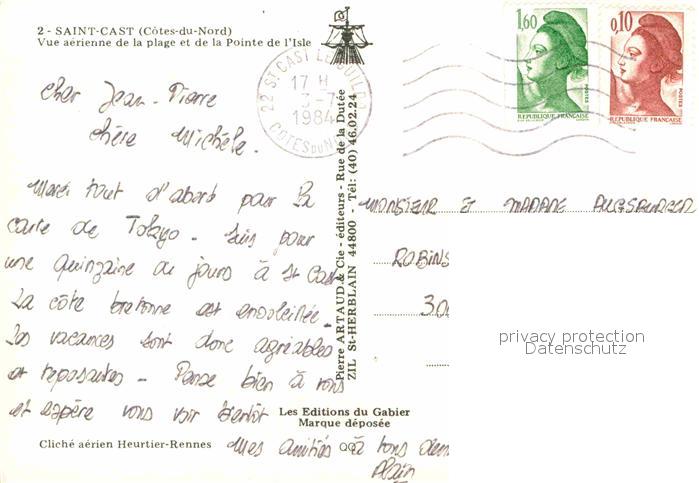 2 - SAINT-CAST (Côtes-du-Nord)
Vue aérienne de la plage et de la Pointe de l'Isle
Cher Jean-Pierre
chère Michèle.
Merci tout d'abord pour la
carte de Tokyo. Suis pour
une quinzaine de jours à St Cast
La côte bretonne est ensoleillée.
Les vacances sont donc agréables
et reposantes - Pense bien à vous
et espère vous voir bientôt
Mes amitiés à tous deux
Alain
Les Editions du Gabier
Marque déposée
Cliché aérien Heurtier-Rennes
Pierre ARTAUD & Cie - éditeurs - Rue de la Dutée
ZIL St-HERBLAIN 44800 - Tél: (40) 46.02.24
22 ST CAST LE GUILDO
17 H
3-7
1984
COTES DU NORD
1,60
POSTES
REPUBLIQUE FRANÇAISE
0,10
POSTES
REPUBLIQUE FRANÇAISE
MONSIEUR & MADAME AUGSBURGER
ROBINS
300
privacy protection
Datenschutz